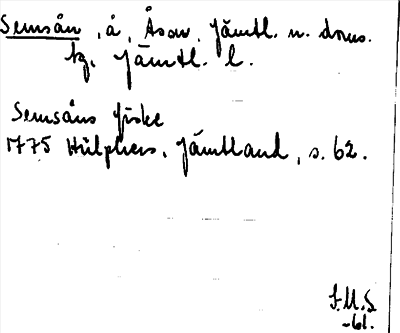 Semsån, å, Åsarn, Jämtl. n. doms.
tg. Jämtl. l.
Semsåns fiske
1775 Hülphers, Jämtland, s. 62.
I.M.S
-61.